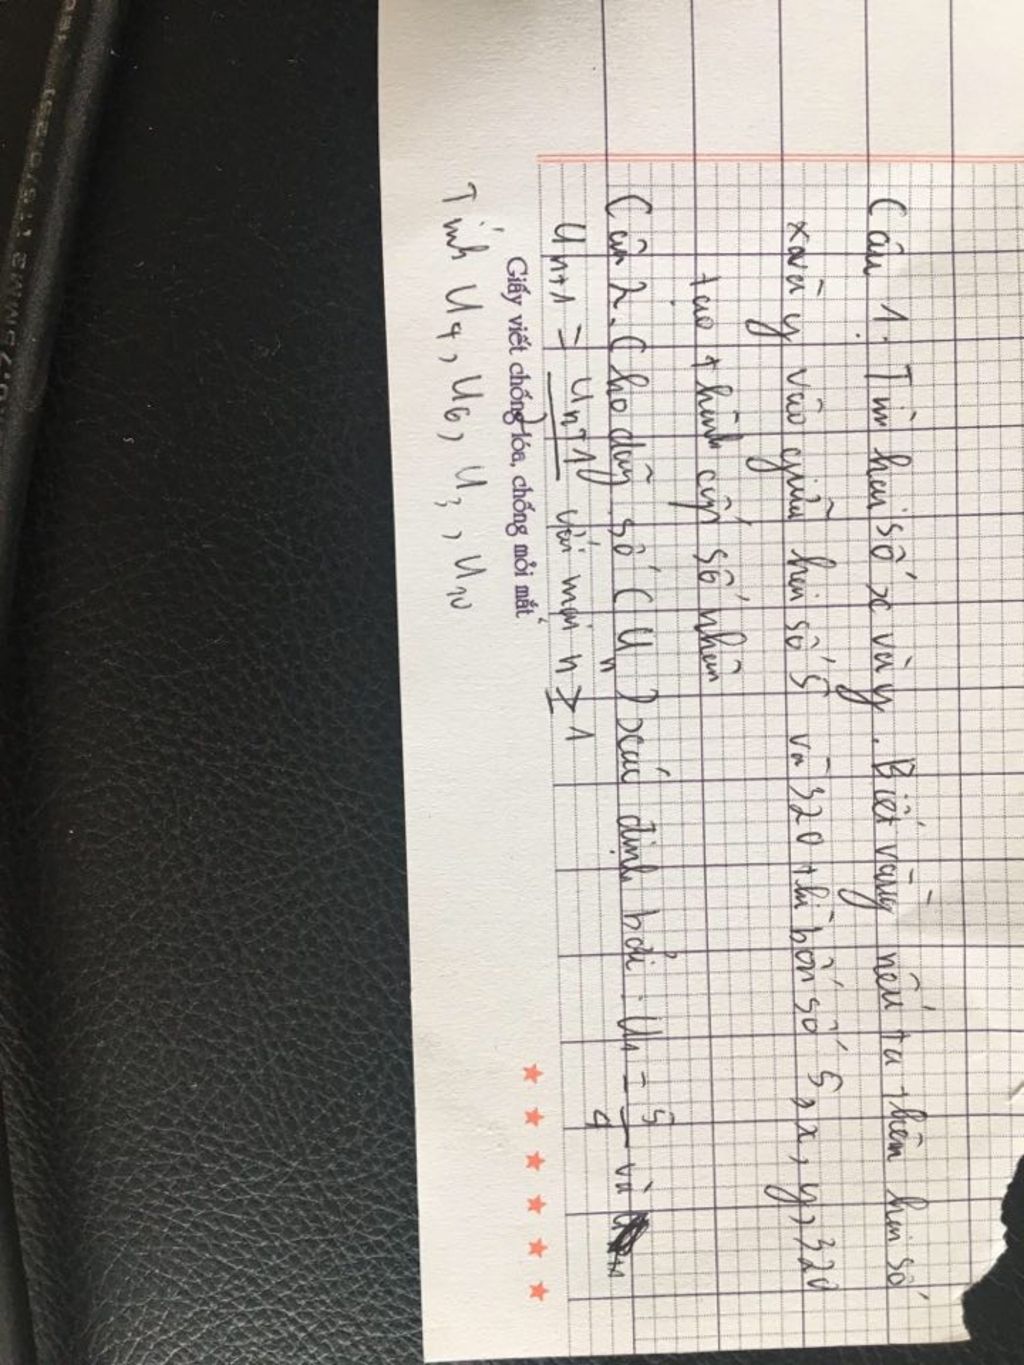 Câu 1. Tìm hai số x và y. Biết rằng nếu ta thêm hai số
x và y vào giữa hai số 5 và 320 thì bốn số 5, x, y, 320
tạo thành cấp số nhân
Câu 2. Cho dãy số (Un) xác định bởi: U1 = 5/4 và
Un+1 = Un+1 với mọi n ≥ 1
Giấy viết chống lóa, chống mỏi mắt
Tính U4, U6, U3, U10